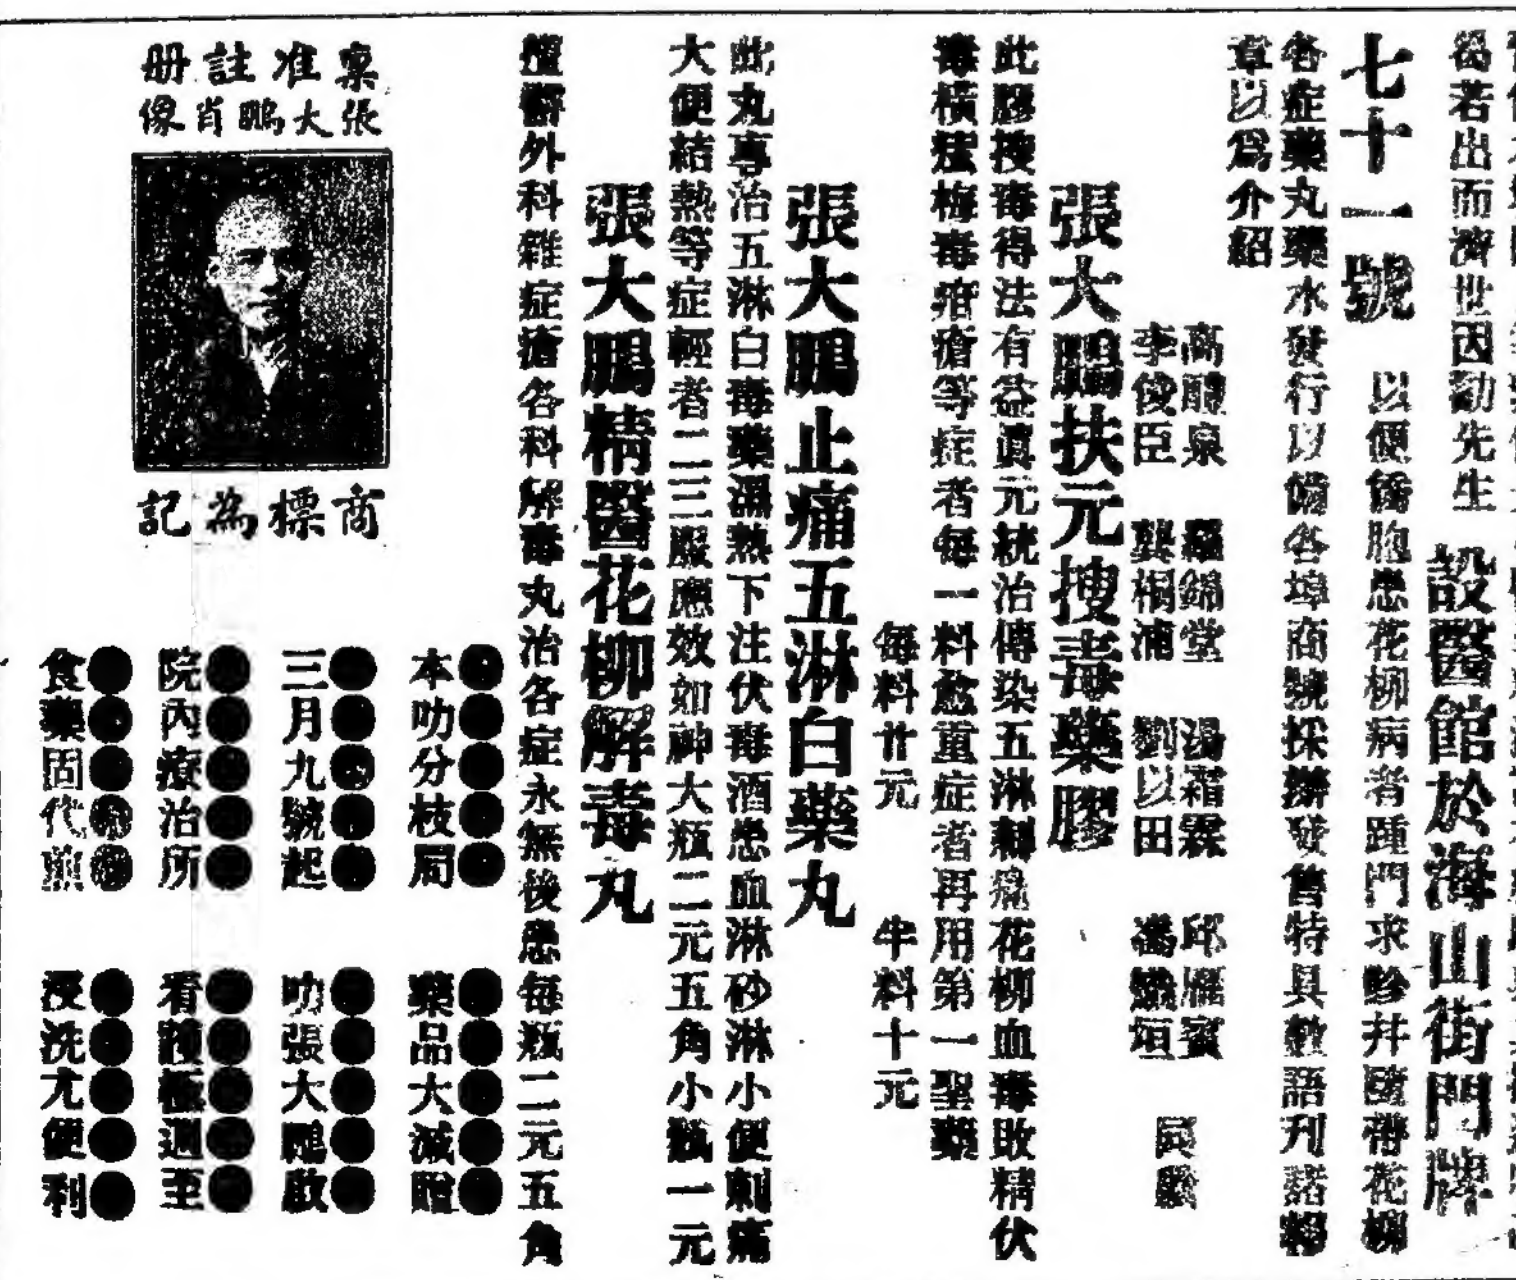 曷若出而濟世因勸先生 設醫館於海山街門牌
七十一號 以便僑胞患花柳病者踵門求診并隨帶花柳
各症藥丸藥水發行以備各埠商號採辦發售特具數語刊諸報
章以爲介紹
高醴泉 羅錦堂 湯霜霖 邱雁賓
李俊臣 龔桐浦 劉以田 馮 垣 同啟
張大鵬扶元搜毒藥膠
此膠搜毒得法有益眞元統治傳染五淋 痛花柳血毒敗精伏
毒橫痃梅毒疳瘡等症者每一料愈重症者再用第一聖藥
每料廿元 半料十元
張大鵬止痛五淋白藥丸
此丸專治五淋白毒藥濕熱下注伏毒酒患血淋砂淋小便刺痛
大便結熱等症輕者二三服應效如神大瓶二元五角小瓶一元
張大鵬精醫花柳解毒丸
擅醫外科雜症瘡各科解毒丸治各症永無後患每瓶二元五角
稟准註冊
張大鵬肖像
商標為記
本叻分枝局 藥品大減贈
三月九號起 叻張大鵬啟
院內療治所 看護極週至
食藥固代煎 浸洗尤便利